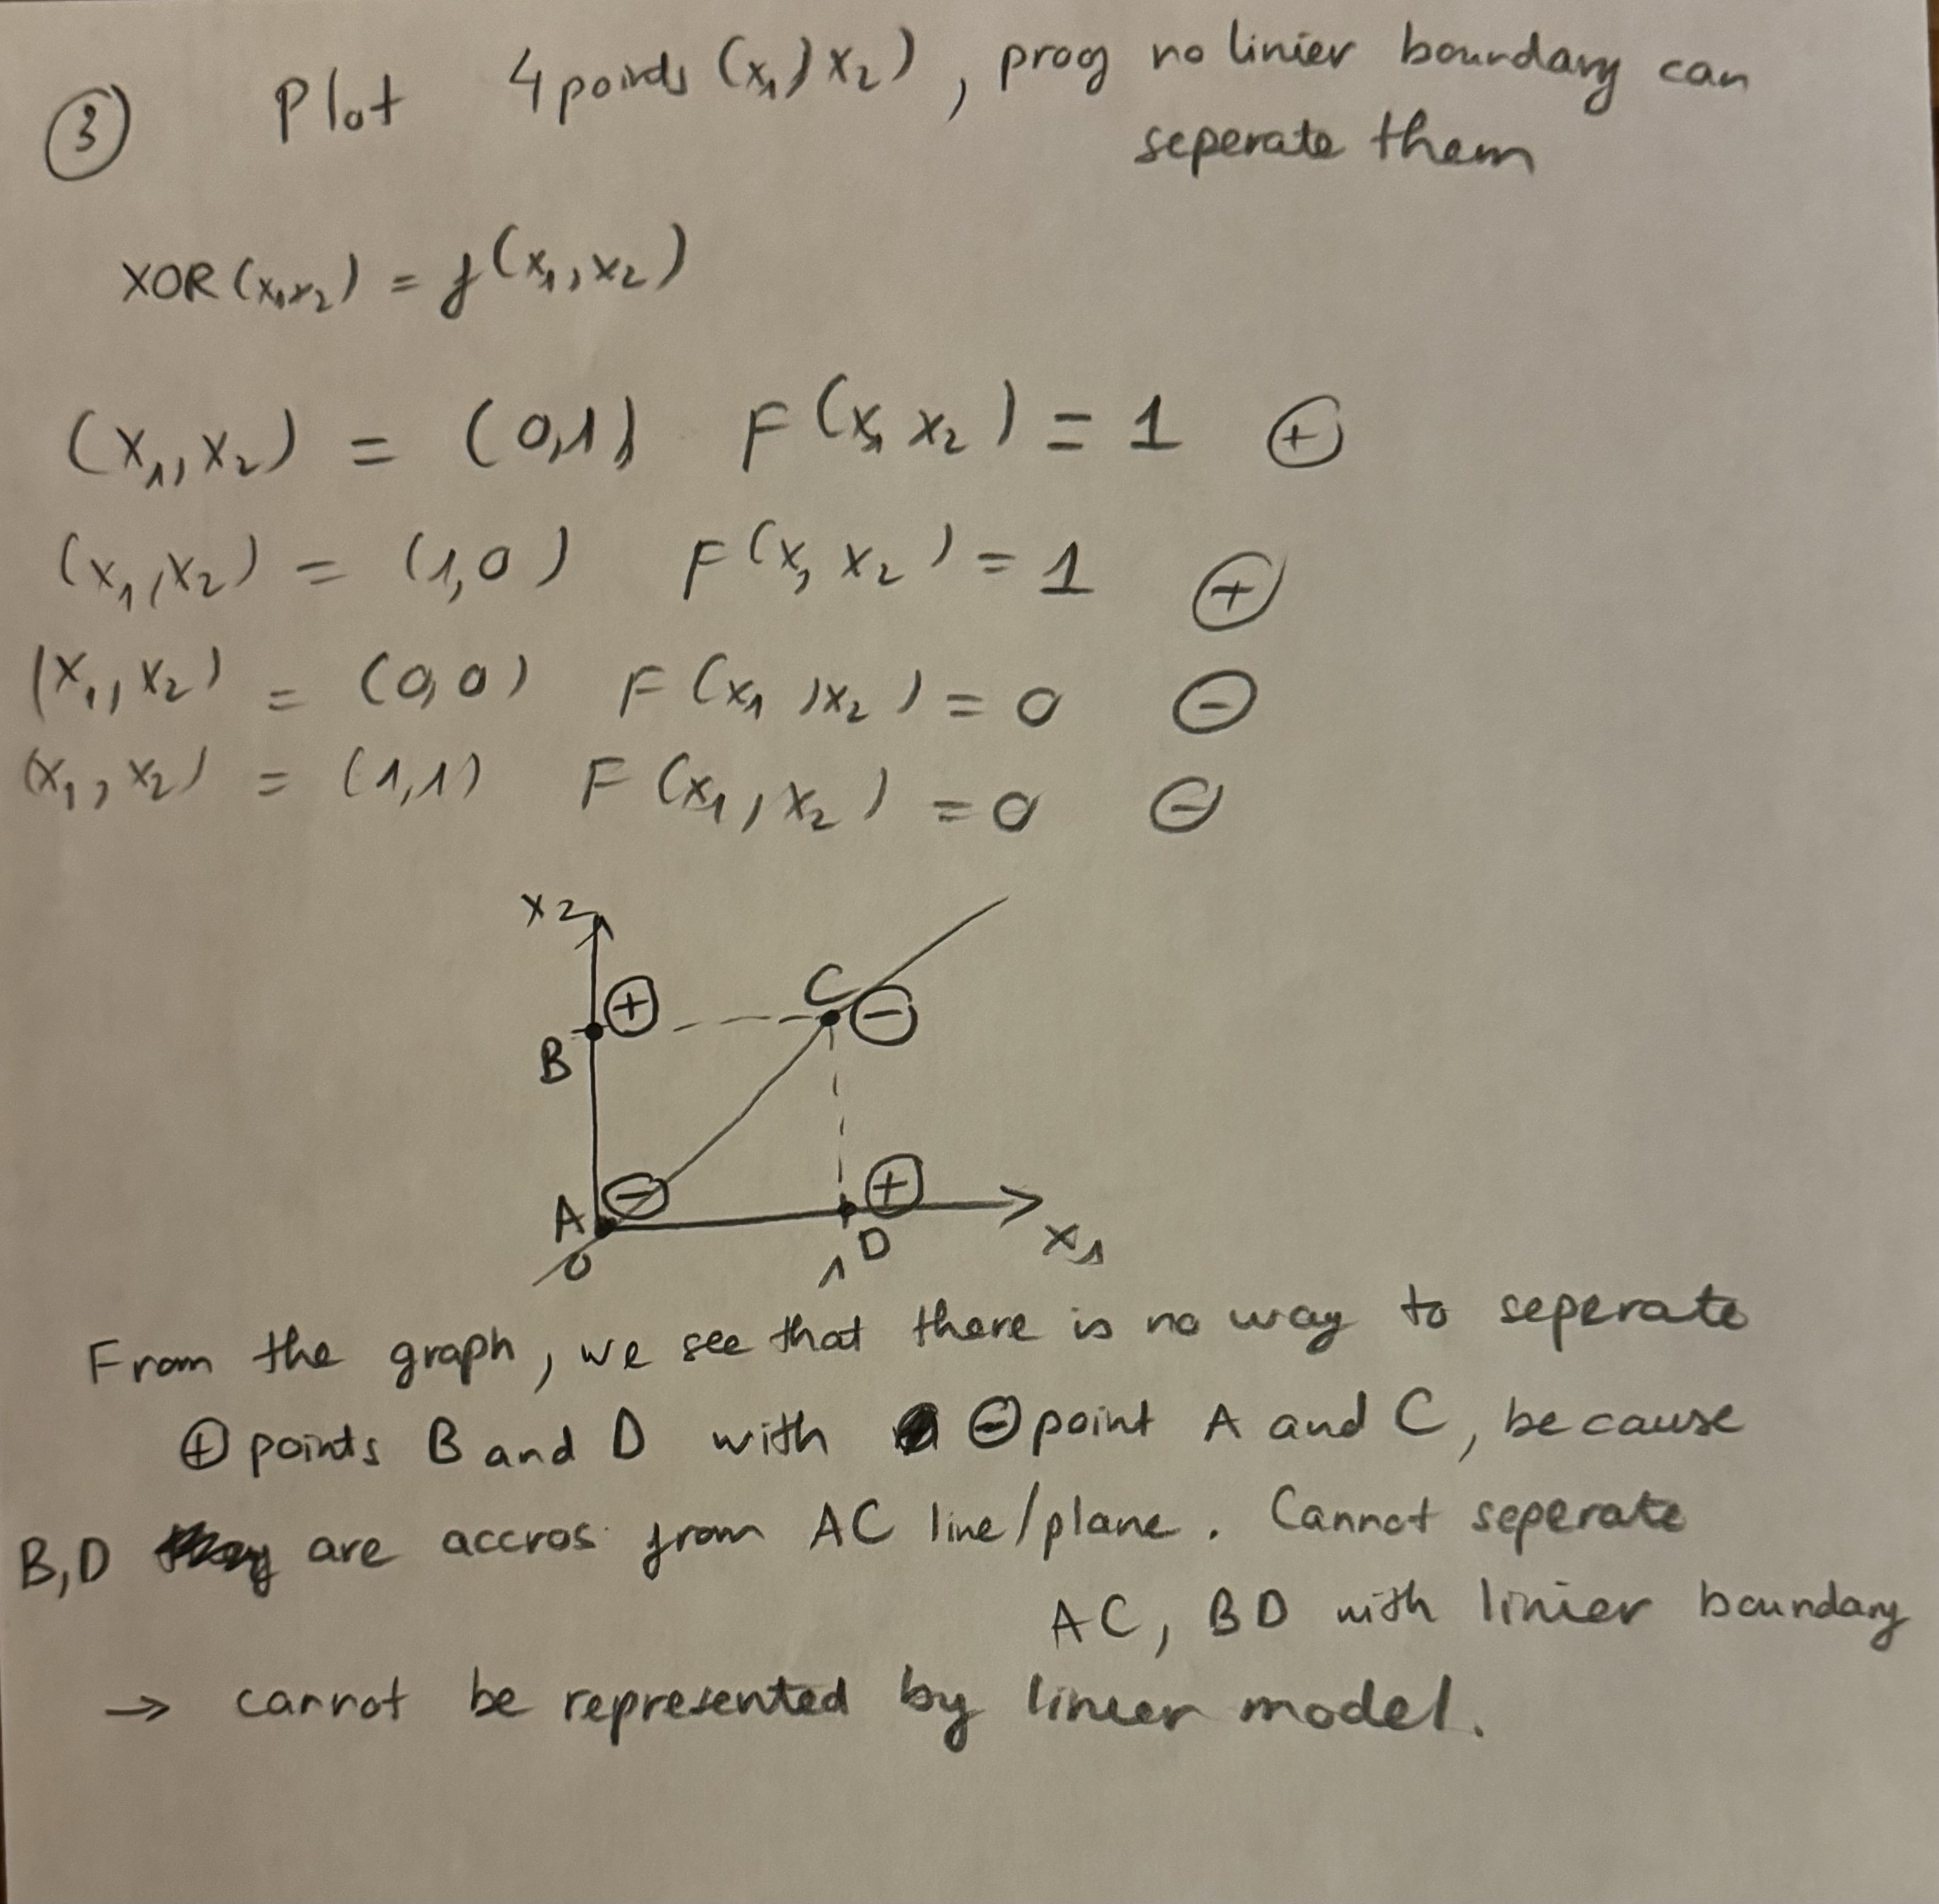 ③ Plot 4 points (x₁, x₂), proog no linier boundary can
seperate them
XOR(x₁,x₂) = f(x₁, x₂)
(x₁, x₂) = (0,1) F(x₁, x₂) = 1 ⊕
(x₁, x₂) = (1,0) F(x₁, x₂) = 1 ⊕
(x₁, x₂) = (0,0) F(x₁, x₂) = 0 ⊖
(x₁, x₂) = (1,1) F(x₁, x₂) = 0 ⊖
x₂
B ⊕ C ⊖
A ⊖ D ⊕
0 1 x₁
From the graph, we see that there is no way to seperate
⊕ points B and D with ⊖ point A and C, because
B,D are accros from AC line/plane. Cannot seperate
AC, BD with linier boundary
→ cannot be represented by linier model.